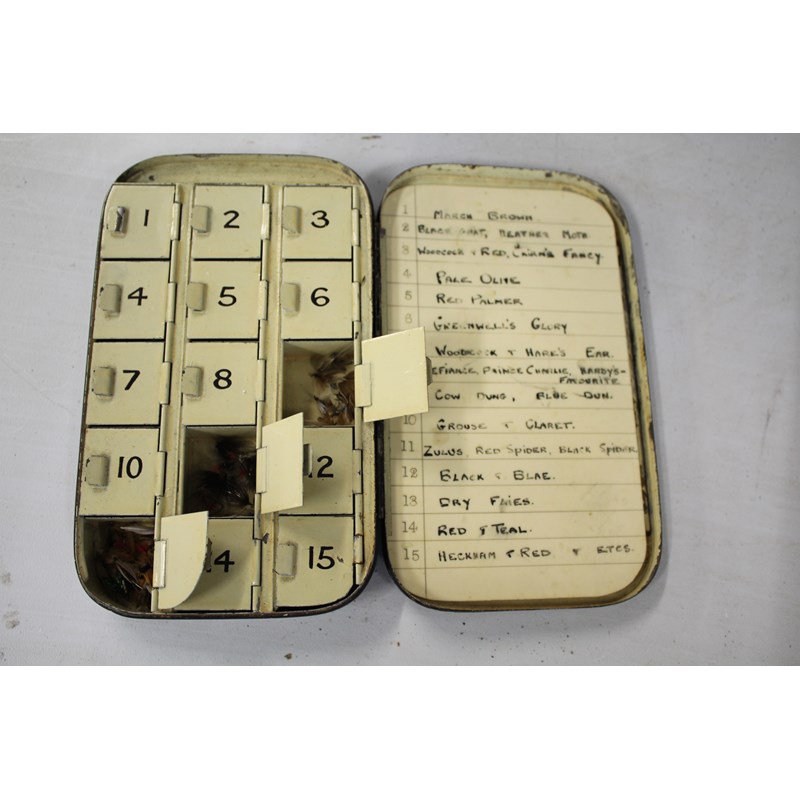 1 2 3
4 5 6
7 8
10 2
4 15
1 MARCH BROWN
2 BLACK GNAT, HEATHER MOTH
3 WOODCOCK & RED, CAIRN'S FANCY.
4 PALE OLIVE
5 RED PALMER
6 GREENWELL'S GLORY
WOODCOCK & HARE'S EAR.
EFIANCE, PRINCE CHARLIE, HANDY'S-
FAVOURITE
COW DUNG, BLUE DUN.
10 GROUSE & CLARET.
11 ZULUS, RED SPIDER, BLACK SPIDER
12 BLACK & BLAE.
13 DRY FLIES.
14 RED & TEAL.
15 HECKHAM & RED & ETCS.